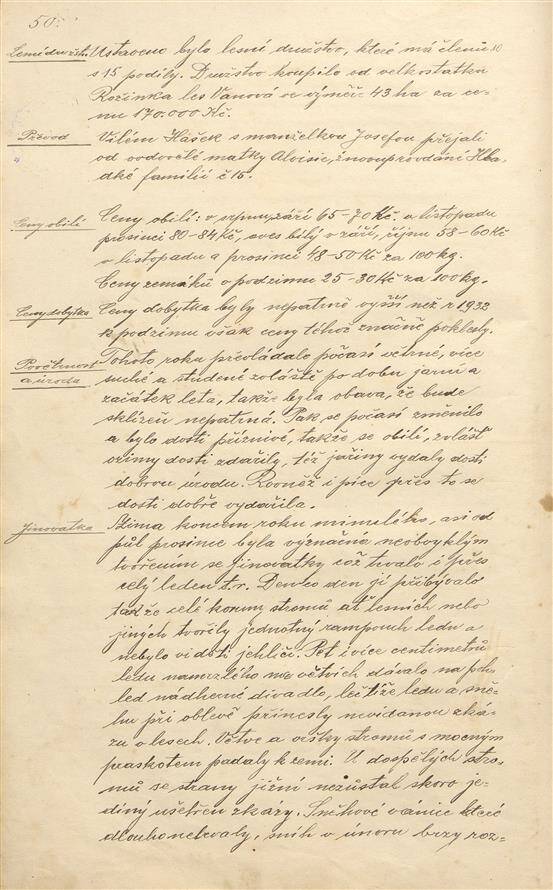 50.
Lesní družst. Ustaveno bylo lesní družstvo, které má členů 10
s 15 podíly. Družstvo koupilo od velkostatku
Rožinka les Vanová ve výměře 43 ha za ce-
nu 170.000 Kč.
Převod Vilém Hášek s manželkou Josefou přejali
od ovdovělé matky Aloisie, znovuprovdání Hla-
dké familii č 15.
Ceny obilí Ceny obilí: v srpnu, září 65-70 Kč. a listopadu
prosinci 80-84 Kč, oves bílý v září, říjnu 58-60 Kč
v listopadu a prosinci 48-50 Kč za 100 kg.
Ceny zemáků v podzimu 25-30 Kč za 100 kg.
Ceny dobytka Ceny dobytka byly nepatrně vyšší než r 1932
k podzimu však ceny téhož značně poklesly.
Povětrnost Tohoto roku převládalo počasí větrné, více
a úroda suché a studené zvláště po dobu jarní a
začátek léta, takže byla obava, že bude
sklizeň nepatrná. Pak se počasí změnilo
a bylo dosti příznivé, takže se obilí, zvlášť
ozimy dosti zdařily, též jařiny vydaly dosti
dobrou úrodu. Rovněž i píce přes to se
dosti dobře vydařila.
Jinovatka Zima koncem roku minulého, asi od
půl prosince byla význačná neobvyklým
tvořením se jinovatky což trvalo i přes
celý leden t.r. Den co den jí přibývalo
takže celé koruny stromů ať lesních nebo
jiných tvořily jednotný rampouch ledu a
nebylo viděti jehličí. Pět i více centimetrů
ledu namrzlého na větvích dávalo na poh-
led nádherné divadlo, leč tíže ledu a sně-
hu při oblevě přinesly nevídanou zká-
zu v lesech. Větve a vršky stromů s mocným
praskotem padaly k zemi. U dospělých stro-
mů se strany jižní nezůstal skoro je-
diný ušetřen zkázy. Sněhové vánice které
dlouho netrvaly, sníh v únoru brzy roz-